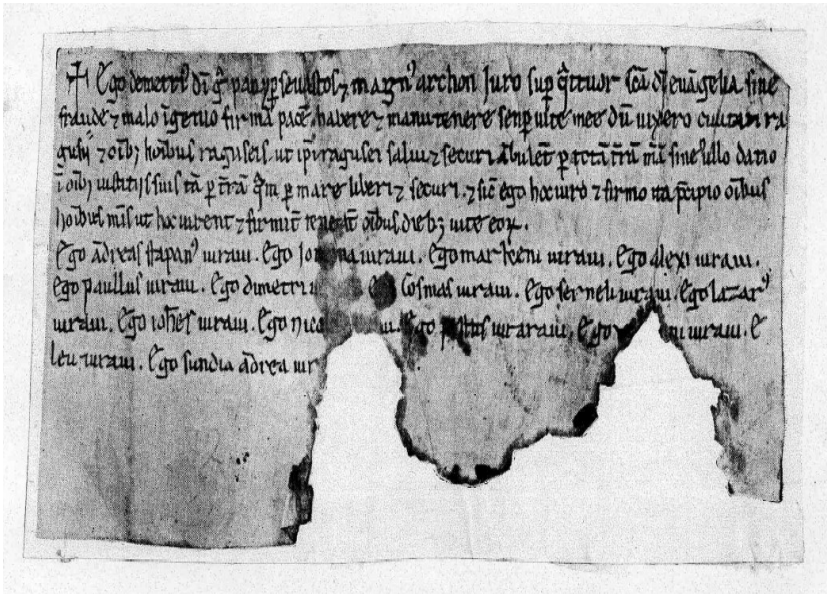 ✝ Ego demetri᷒ dī gr̄a panyp̄sevastos ⁊ magn᷒ archon Juro sup̄ q̄ttuor sc̄a dī evāngelia sine
fraude ⁊ malo īgenio firmā pacē habere ⁊ manutenere senper vite mee dū vixero civitati ra
gusii ⁊ oīb; hoībus raguseis. ut ip̄i ragusei salvi ⁊ securi ābulēt p̄ totā t̄rā m̄ā sine ullo datio
ī oīb; iustitiis suis tā p̄ t̄rā q̄m p̄ mare liberi ⁊ securi. ⁊ sic̄ ego hoc iuro ⁊ firmo ita p̄cipio oībus
hoībus m̄is ut hoc iurent ⁊ firmit̄ oībus dieb; vite eoꝝ.
Ego ādreas stapan᷒ iuravi. Ego iuravi. Ego markeni iuravi. Ego alexi iuravi.
Ego paullus iuravi. Ego dimetri Cosmas iuravi. Ego iuravi. Ego lazar᷒
iuravi. Ego ioh̄es iuravi. Ego nico Ego iuraravi. Ego iuravi. E
leu iuravi. Ego sundia ādrea iur